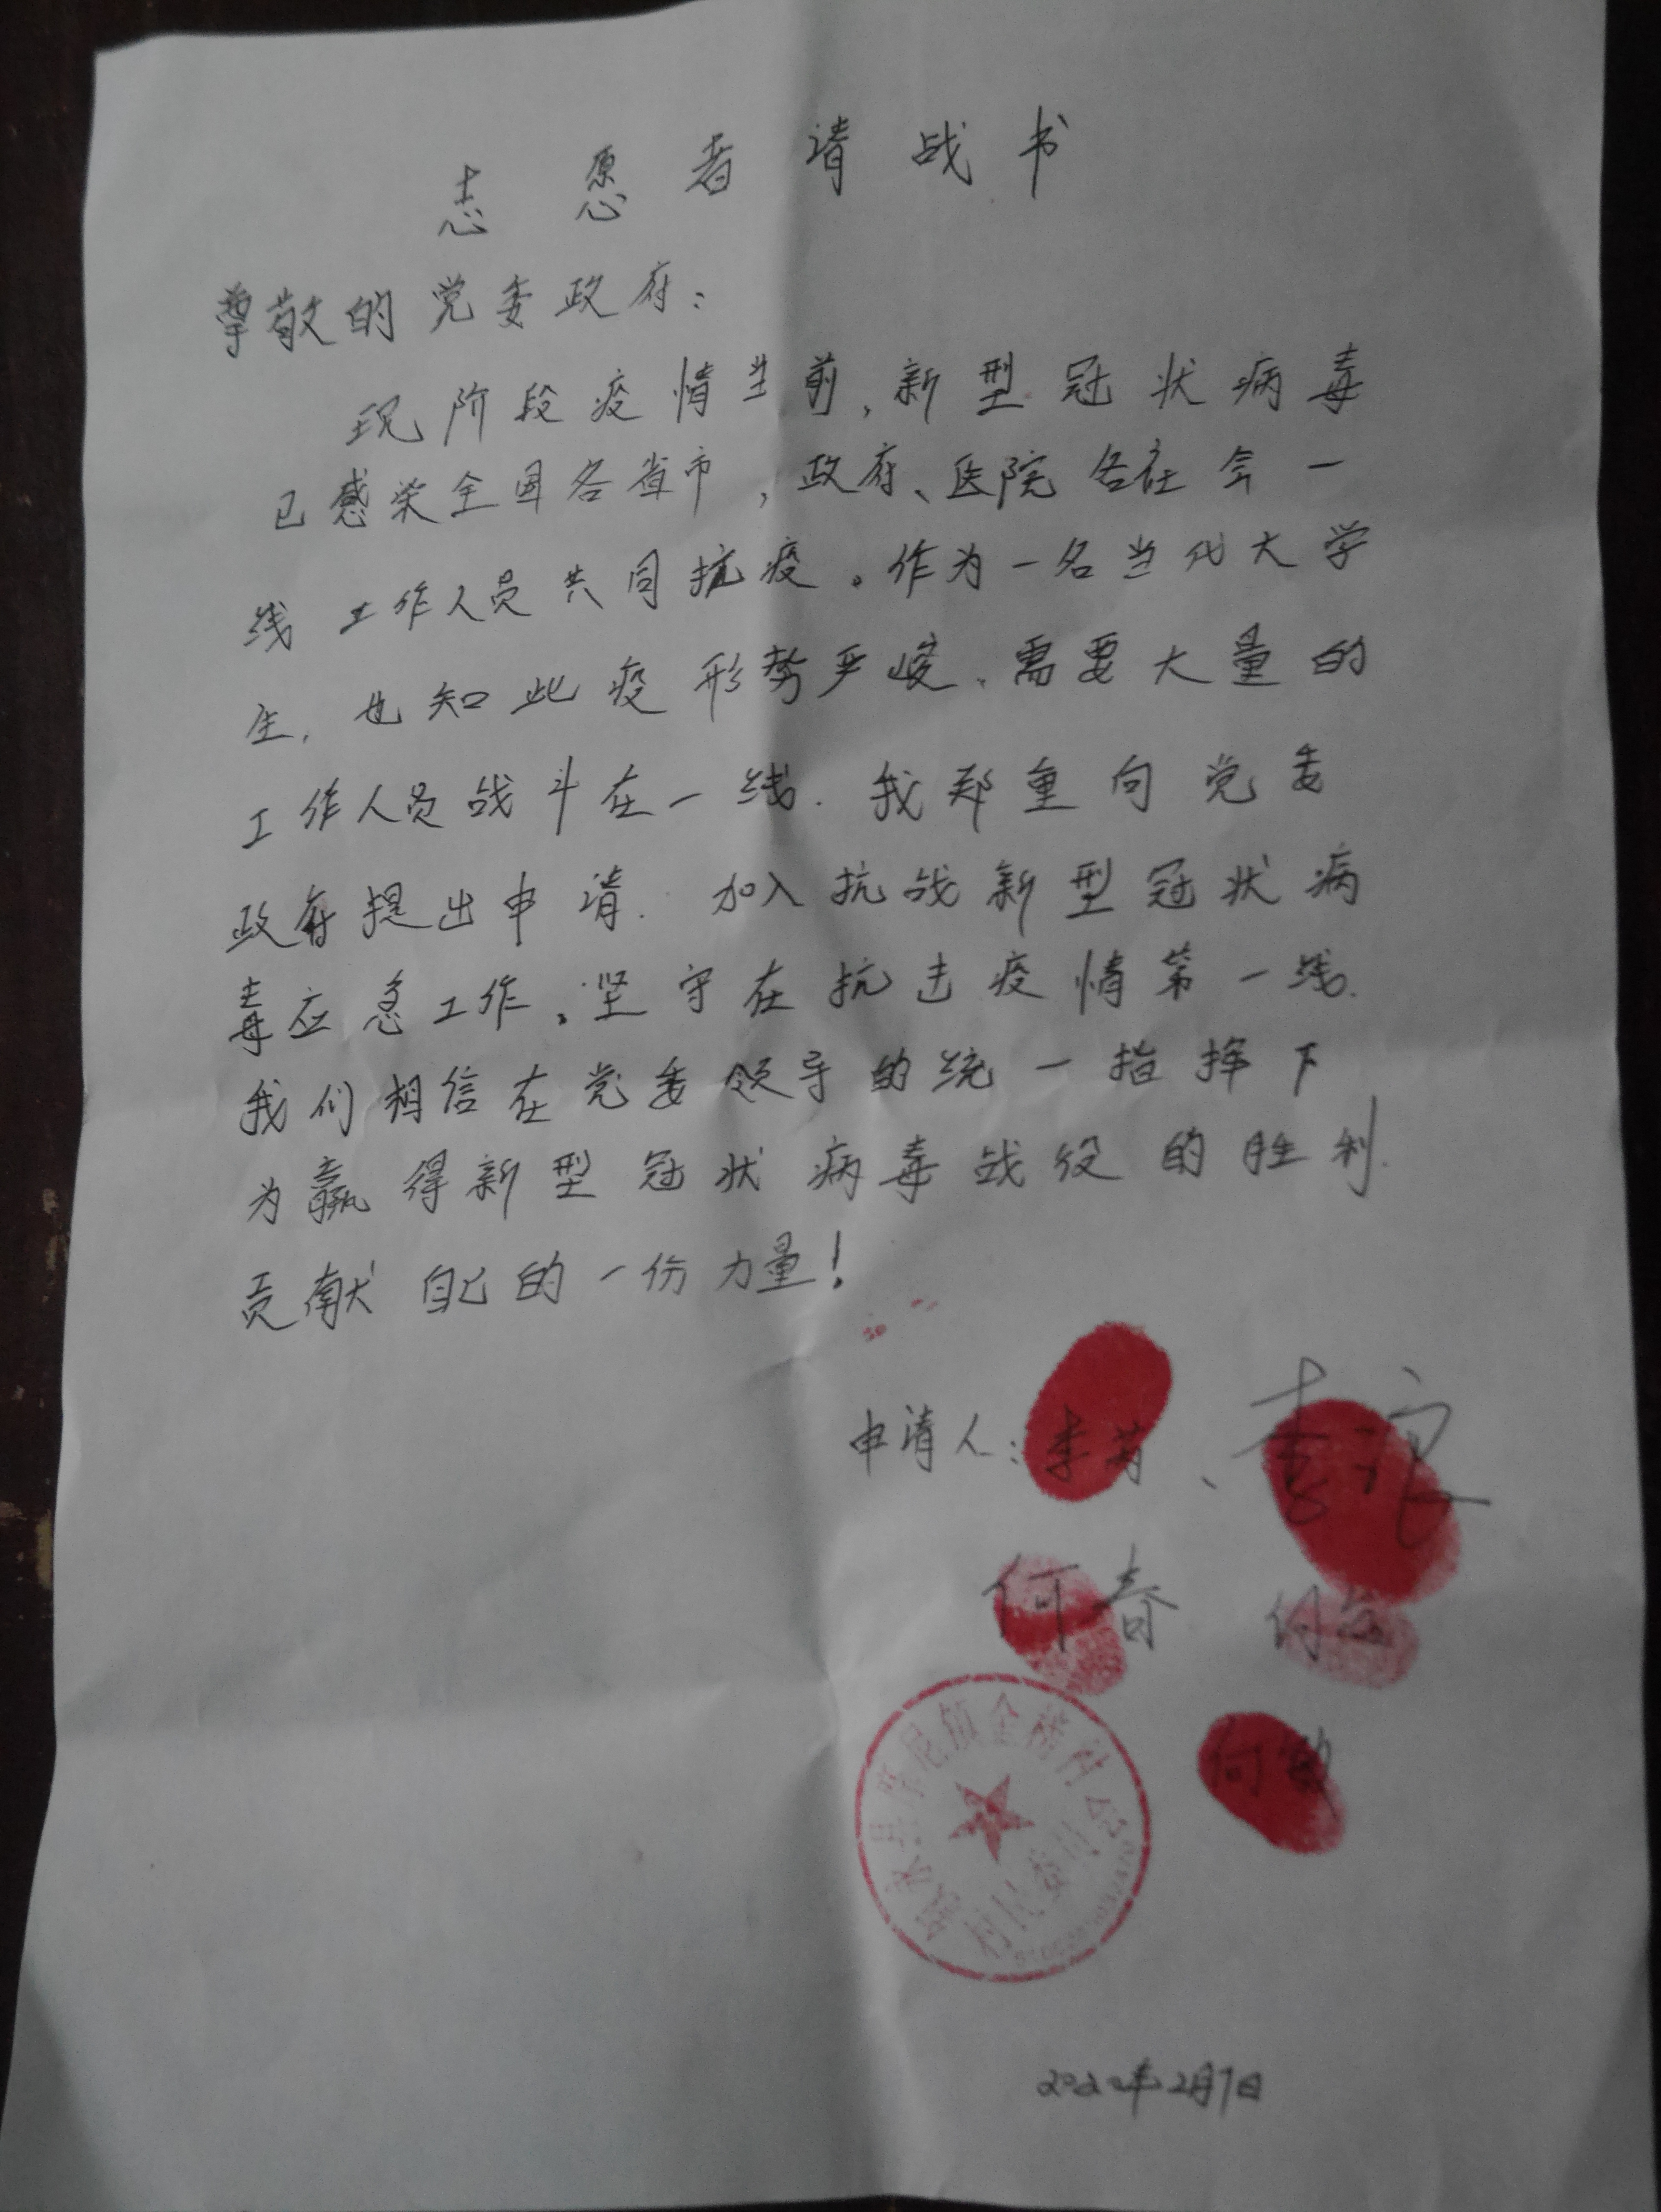 志愿者请战书
尊敬的党委政府：
现阶段疫情当前，新型冠状病毒
已感染全国各省市，政府、医院各社会一
线工作人员共同抗疫。作为一名当代大学
生，也知此疫形势严峻、需要大量的
工作人员战斗在一线．我郑重向党委
政府提出申请．加入抗战新型冠状病
毒应急工作。坚守在抗击疫情第一线．
我们相信在党委领导的统一指挥下
为赢得新型冠状病毒战役的胜利．
贡献自己的一份力量！
申请人：李芳、李
何春
何敏
尼镇金榜村
村民委员会
2020年2月7日